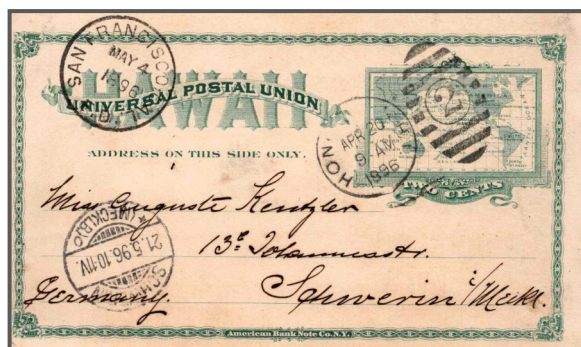 SAN FRANCISCO
MAY 4
1896
HAWAII
UNIVERSAL POSTAL UNION
ADDRESS ON THIS SIDE ONLY.
HON
APR 20
9 AM
1896
2
TWO CENTS
Miss Auguste Kentzler
13E Johannesstr.
Schwerin i/Meckl.
Germany.
(MECKLB)
21.5.96.10-11V.
SCH
American Bank Note Co. N.Y.